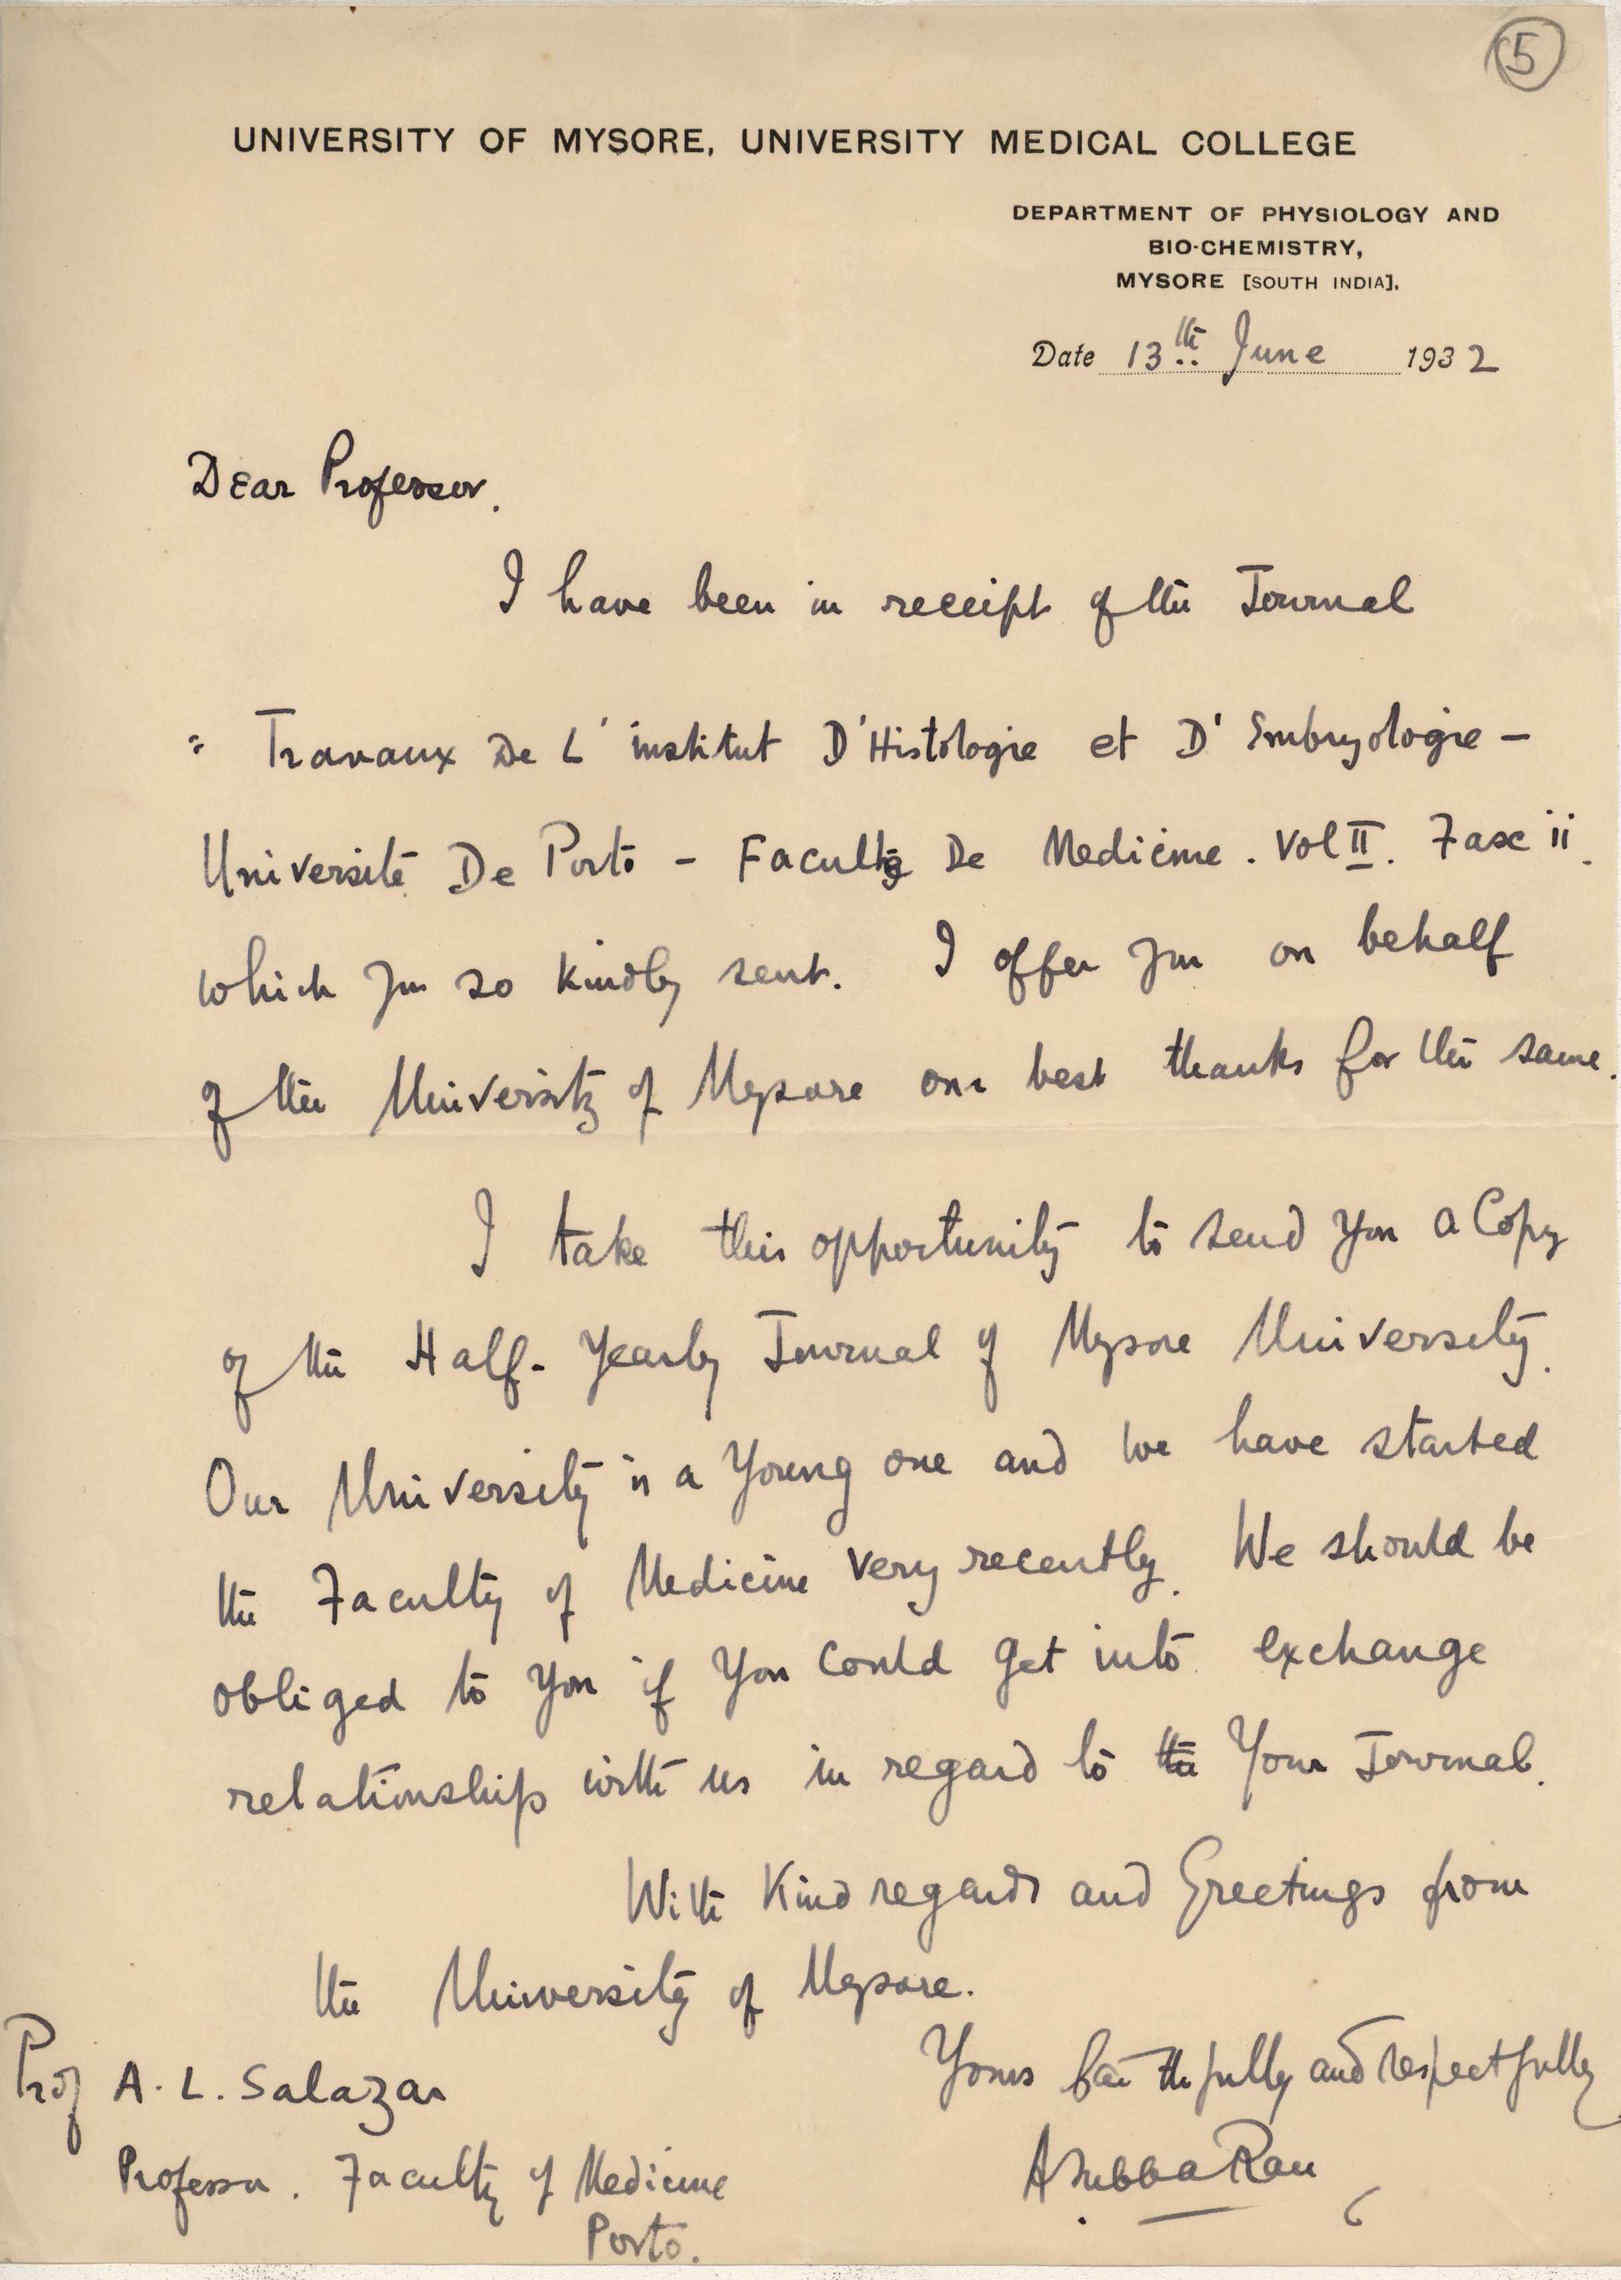 5
UNIVERSITY OF MYSORE, UNIVERSITY MEDICAL COLLEGE
DEPARTMENT OF PHYSIOLOGY AND
BIO-CHEMISTRY,
MYSORE [SOUTH INDIA].
Date 13th June 1932
Dear Professor.
I have been in receipt of the Journal
" Travaux De L'institut D'Histologie et D'Embryologie -
Université De Porto - Faculté De Medicine. Vol II. Fasc ii.
which you so kindly sent. I offer you on behalf
of the University of Mysore our best thanks for the same.
I take this opportunity to send you a Copy
of the Half-Yearly Journal of Mysore University.
Our University is a Young one and we have started
the Faculty of Medicine very recently. We should be
obliged to you if you could get into exchange
relationship with us in regard to the Your Journal.
With Kind regards and Greetings from
the University of Mysore.
Yours faithfully and respectfully
A Subba Rau
Prof A. L. Salazar
Professor. Faculty of Medicine
Porto.